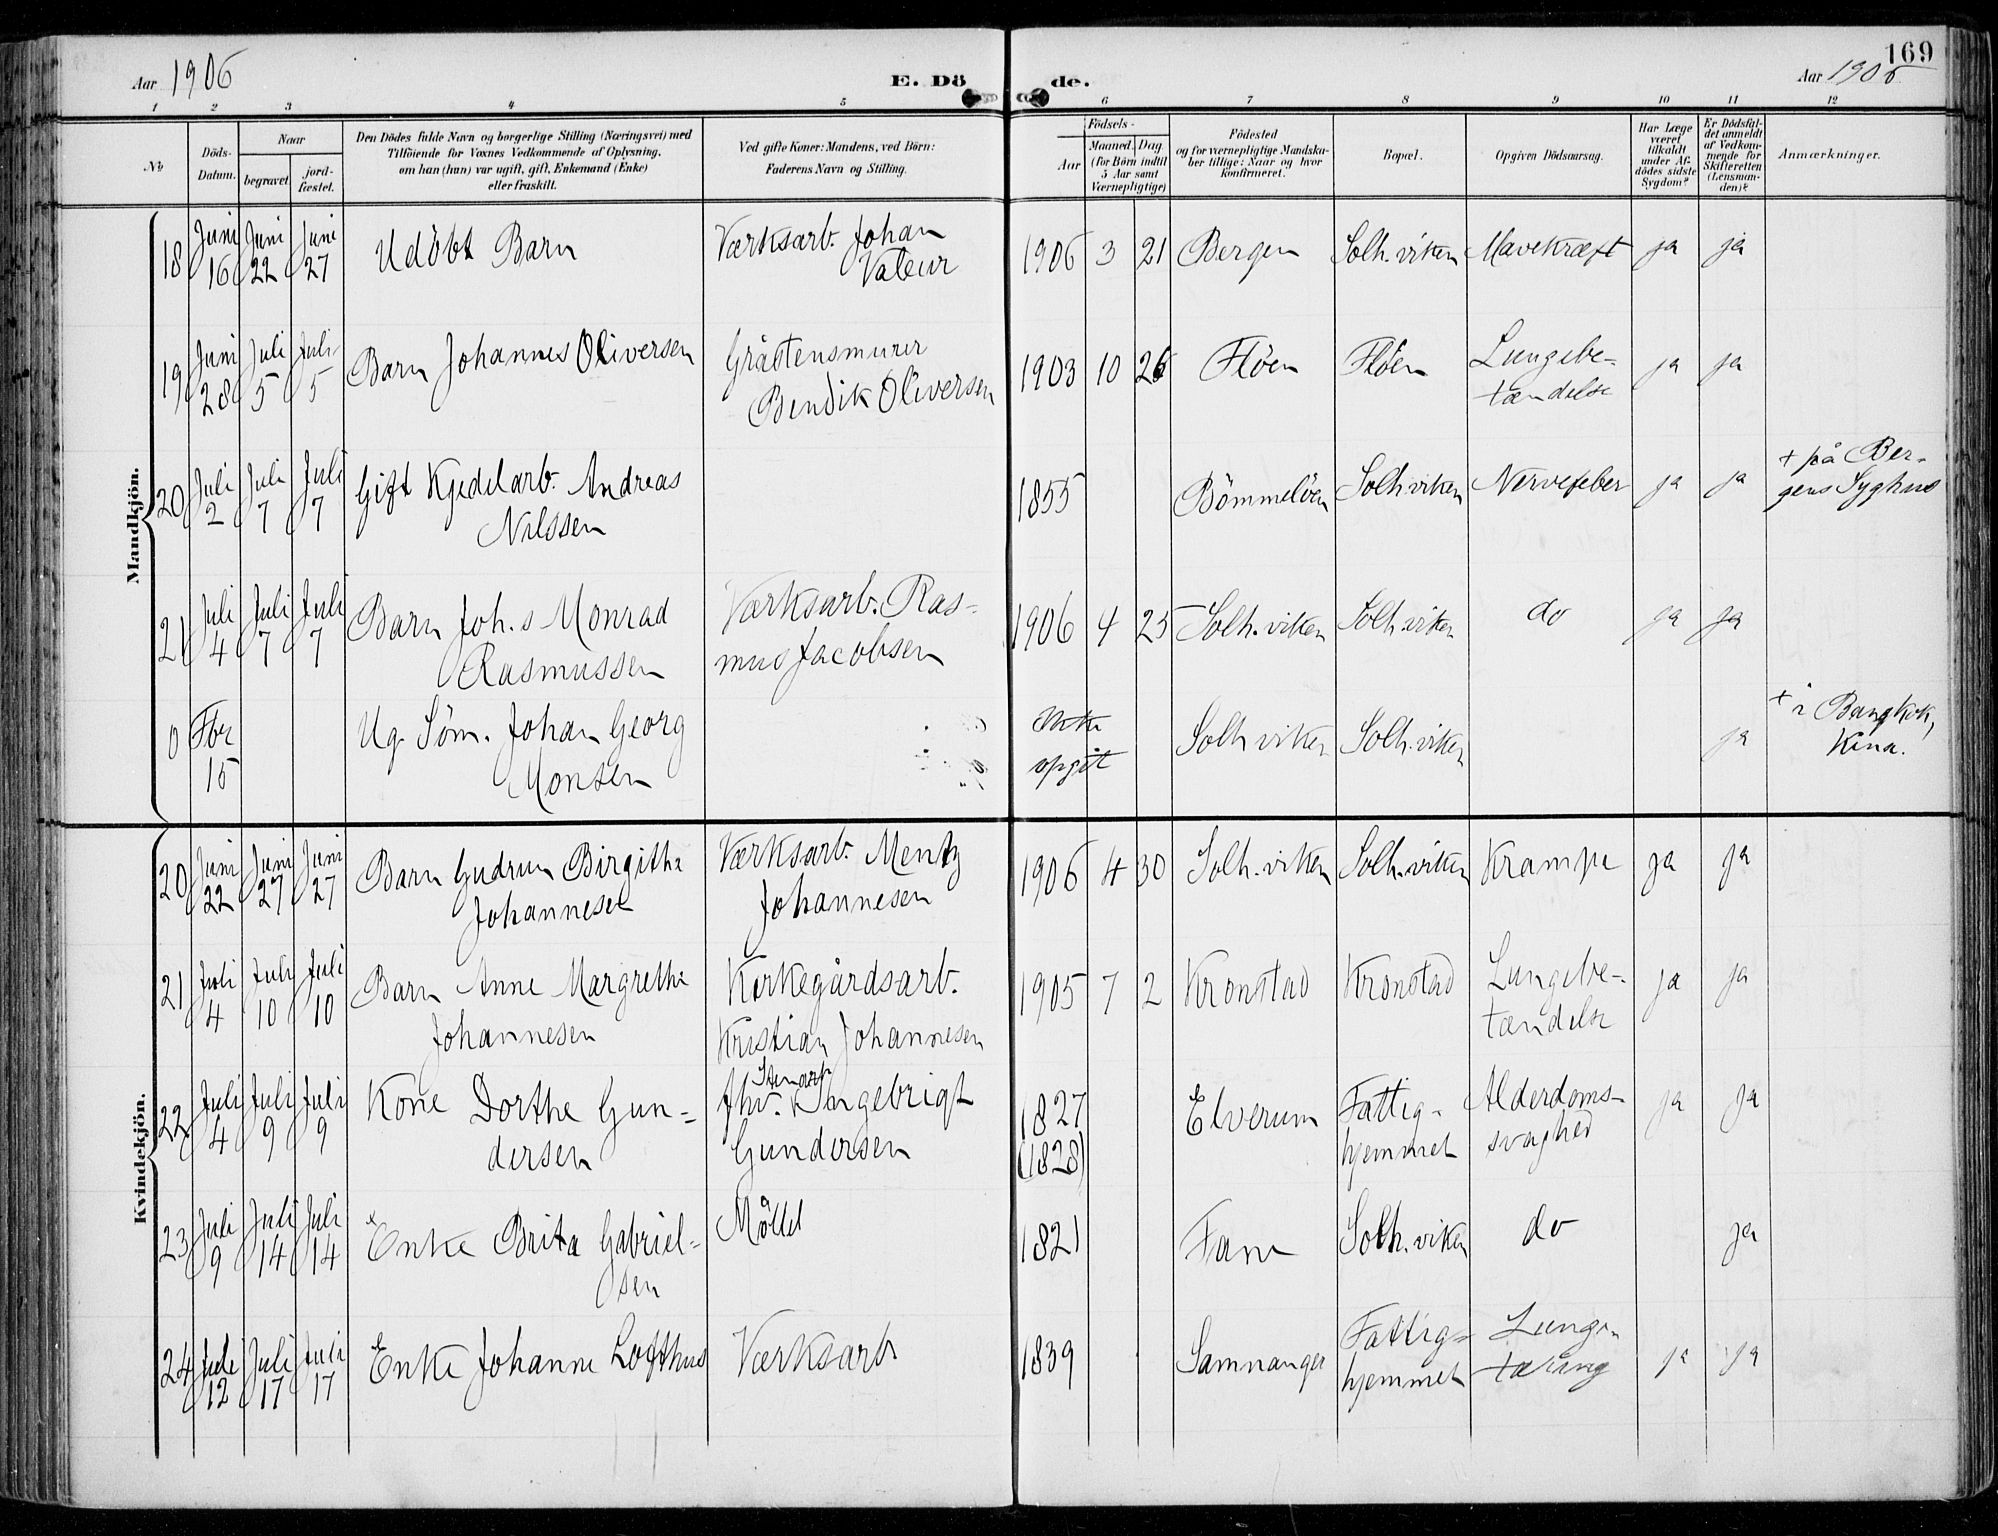 169
Aar 1906 E. Dö de. Aar 1906
1 2 3 4 5 6 7 8 9 10 11 12
No
Döds-
Datum.
Naar
begravet.
jord-
fæstet.
Den Dödes fulde Navn og borgerlige Stilling (Næringsvei) med
Tilföiende for Voxnes Vedkommende af Oplysning,
om han (hun) var ugift, gift, Enkemand (Enke)
eller fraskilt.
Ved gifte Koner: Mandens, ved Börn:
Faderens Navn og Stilling.
Födsels-
Aar
Maaned. Dag.
(for Börn indtil
5 Aar samt
Værnepligtige)
Födested
og for værnepligtige Mandska-
ber tillige: Naar og hvor
konfirmeret.
Bopæl.
Opgiven Dödsaarsag.
Har Læge
været
tilkaldt
under Af-
dödes sidste
Sygdom?
Er Dödsfal-
det anmeldt
af Vedkom-
mende for
Skifteretten
(Lensman-
den)?
Anmærkninger.
Mandkjön.
18 Juni 16 Juni 22 Juni 27 Udöbt Barn Værksarb. Johan
Valeur 1906 3 21 Bergen Solh.viken Mavekræft ja ja
19 Juni 28 Juli 5 Juli 5 Barn Johannes Oliversen Gråstensmurer
Bendik Oliversen 1903 10 26 Flöen Flöen Lungebe-
tændelse ja ja
20 Juli 2 Juli 7 Juli 7 Gift Kjedelarb. Andreas
Nilssen 1855 Bömmelöen Solh.viken Nervefeber ja ja + på Ber-
gens Sygehus
21 Juli 4 Juli 7 Juli 7 Barn Joh.s Monrad
Rasmussen Værksarb. Ras-
mus Jacobsen 1906 4 25 Solh.viken Solh.viken do ja ja
0 Fbr 15 Ug. Söm. Johan Georg
Monsen Ikke
opgit Solh viken Solh.viken ja + i Bangkok,
Kina.
Kvindekjön.
20 Juni 22 Juni 27 Juni 27 Barn Gudrun Birgitha
Johannesen Værksarb. Mentz
Johannesen 1906 4 30 Solh.viken Solh.viken Krampe ja ja
21 Juli 4 Juli 10 Juli 10 Barn Anne Margrethe
Johannesen Kirkegårdsarb.
Kristian Johannesen 1905 7 2 Kronstad Kronstad Lungebe-
tændelse ja ja
22 Juli 4 Juli 9 Juli 9 Kone Dorthe Gun-
dersen fhv. Stenarb. Ingebrigt
Gundersen 1827
(1828) Elverum Fattig-
hjemmet Alderdoms-
svaghed ja ja
23 Juli 9 Juli 14 Juli 14 Enke Brita Gabriel-
sen 1821 Fane Solh.viken do ja
24 Juli 12 Juli 17 Juli 17 Enke Johanne Lofthus Værksarb 1839 Samnanger Fattig-
hjemmet Lunge-
tæring ja ja